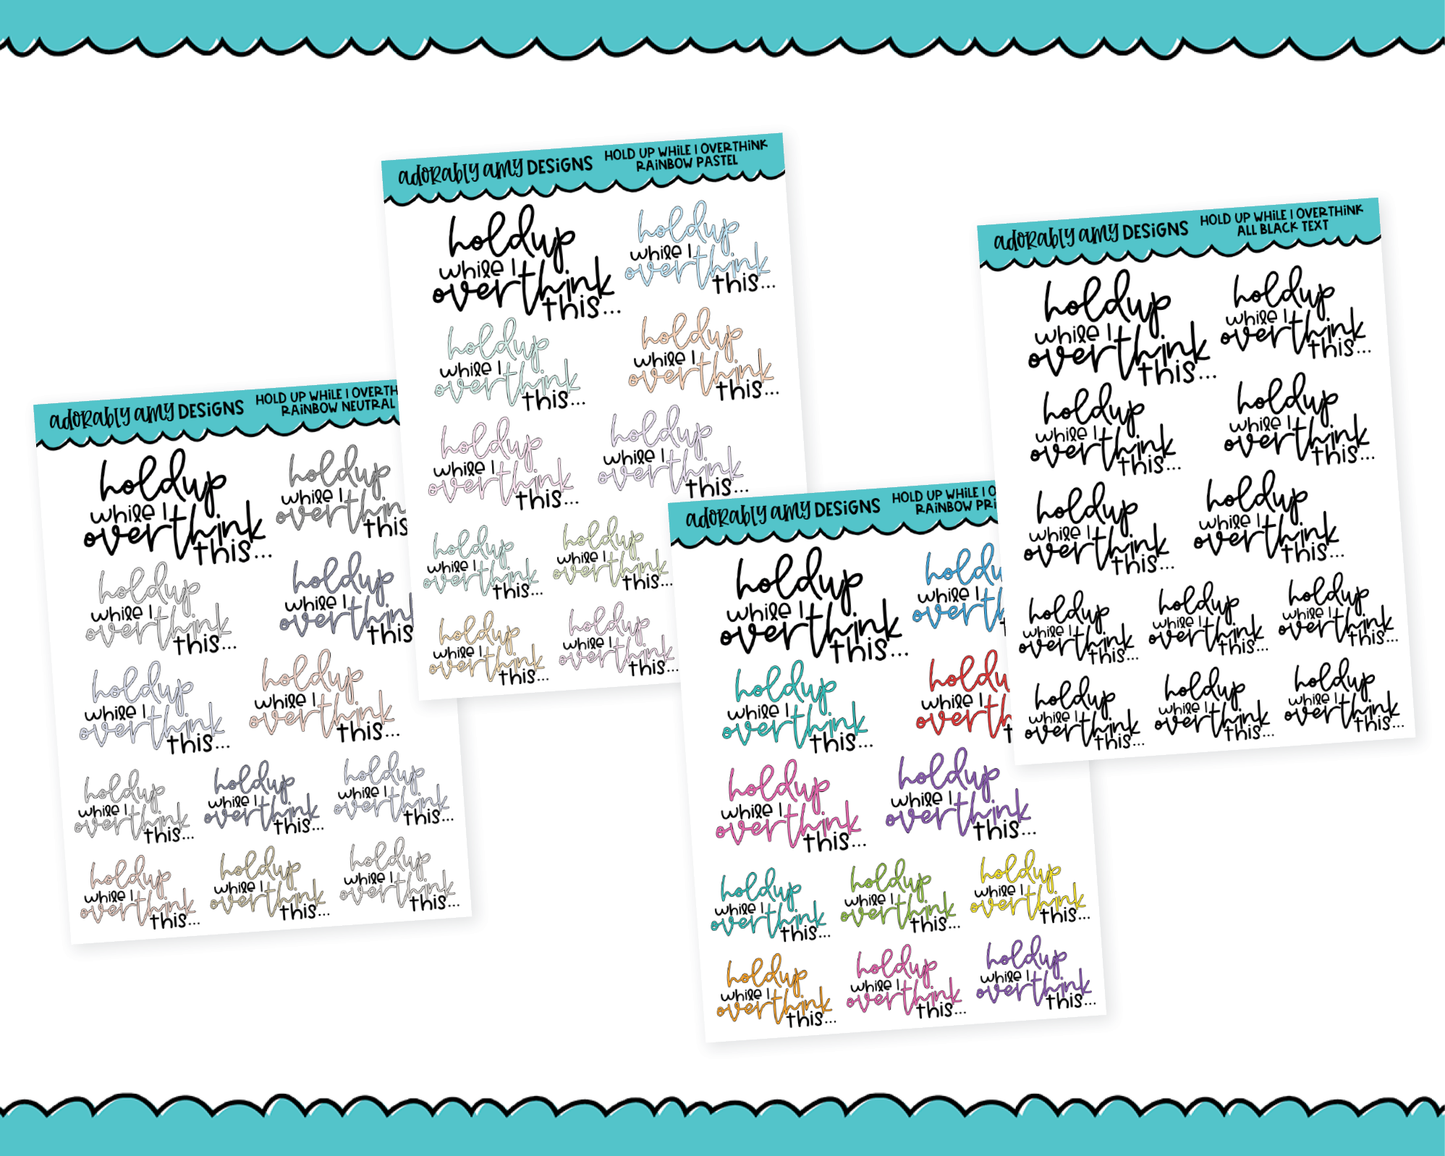 adorably amy DESIGNS
HOLD UP WHILE I OVERTHINK
RAINBOW PASTEL
holdup
while I
overthink
this...
holdup
while I
overthink
this...
holdup
while I
overthink
this...
holdup
while I
overthink
this...
holdup
while I
overthink
this...
holdup
while I
overthink
this...
holdup
while I
overthink
this...
holdup
while I
overthink
this...
holdup
while I
overthink
this...
holdup
while I
overthink
this...
adorably amy DESIGNS
HOLD UP WHILE I OVERTHINK
ALL BLACK TEXT
holdup
while I
overthink
this...
holdup
while I
overthink
this...
holdup
while I
overthink
this...
holdup
while I
overthink
this...
holdup
while I
overthink
this...
holdup
while I
overthink
this...
holdup
while I
overthink
this...
holdup
while I
overthink
this...
holdup
while I
overthink
this...
holdup
while I
overthink
this...
holdup
while I
overthink
this...
holdup
while I
overthink
this...
adorably amy DESIGNS
HOLD UP WHILE I OVERTH
RAINBOW NEUTRAL
holdup
while I
overthink
this...
holdup
while I
overthin
this
holdup
while I
overthink
this...
holdup
while I
overthin
this
holdup
while I
overthink
this...
holdup
while I
overthink
this...
holdup
while I
overthink
this...
holdup
while I
overthink
this...
holdup
while I
overthink
this...
holdup
while I
overthink
this...
holdup
while I
overthink
this...
holdup
while I
overthink
this...
adorably amy DESIGNS
HOLD UP WHILE I O
RAINBOW PRI
holdup
while I
overthink
this...
holdu
while I
overth
holdup
while I
overthink
this...
holdu
while I
overth
holdup
while I
overthink
this...
holdup
while I
overthink
this...
holdup
while I
overthink
this...
holdup
while I
overthink
this...
holdup
while I
overthink
this...
holdup
while I
overthink
this...
holdup
while I
overthink
this...
holdup
while I
overthink
this...